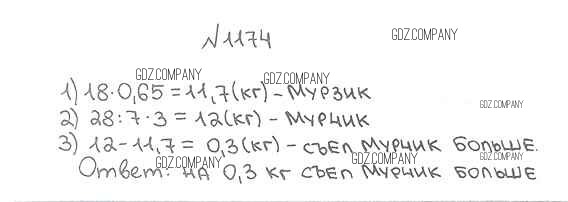 №1174
GDZ.COMPANY
GDZ.COMPANY
GDZ.COMPANY
1) 18·0,65=11,7(кг) - Мурзик
GDZ.COMPANY
2) 28:7·3=12(кг) - Мурчик
3) 12-11,7= 0,3(кг) - съел Мурчик больше.
GDZ.COMPANY
GDZ.COMPANY
GDZ.COMPANY
Ответ: на 0,3 кг съел Мурчик больше